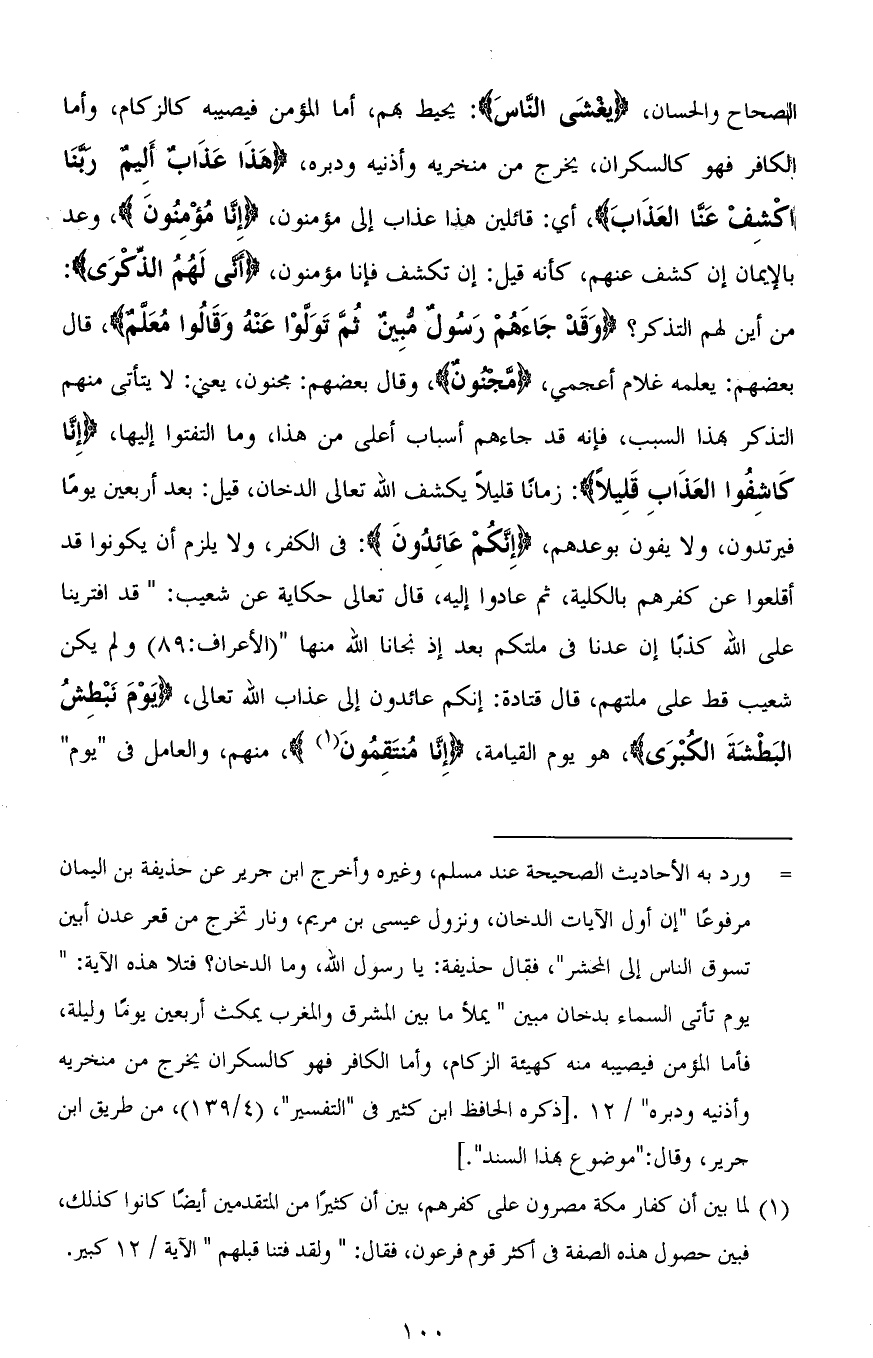 الصحاح والحسان، ﴿يَغْشَى النَّاسَ﴾: يحيط بهم، أما المؤمن فيصيبه كالزكام، وأما
الكافر فهو كالسكران، يخرج من منخريه وأذنيه ودبره، ﴿هَذَا عَذَابٌ أَلِيمٌ رَبَّنَا
اكْشِفْ عَنَّا العَذَابَ﴾، أي: قائلين هذا عذاب إلى مؤمنون، ﴿إِنَّا مُؤْمِنُونَ ﴾، وعد
بالإيمان إن كشف عنهم، كأنه قيل: إن تكشف فإنا مؤمنون، ﴿أَنَّى لَهُمُ الذِّكْرَى﴾:
من أين لهم التذكر؟ ﴿وَقَدْ جَاءَهُمْ رَسُولٌ مُّبِينٌ ثُمَّ تَوَلَّوْا عَنْهُ وَقَالُوا مُعَلَّمٌ﴾، قال
بعضهم: يعلمه غلام أعجمي، ﴿مَّجْنُونٌ﴾، وقال بعضهم: مجنون، يعني: لا يتأتى منهم
التذكر بهذا السبب، فإنه قد جاءهم أسباب أعلى من هذا، وما التفتوا إليها، ﴿إِنَّا
كَاشِفُوا العَذَابِ قَلِيلاً﴾: زمانًا قليلاً يكشف الله تعالى الدخان، قيل: بعد أربعين يومًا
فيرتدون، ولا يفون بوعدهم، ﴿إِنَّكُمْ عَائِدُونَ ﴾: فى الكفر، ولا يلزم أن يكونوا قد
أقلعوا عن كفرهم بالكلية، ثم عادوا إليه، قال تعالى حكاية عن شعيب: " قد افترينا
على الله كذبًا إن عدنا فى ملتكم بعد إذ نجانا الله منها "(الأعراف:٨٩) و لم يكن
شعيب قط على ملتهم، قال قتادة: إنكم عائدون إلى عذاب الله تعالى، ﴿يَوْمَ نَبْطِشُ
البَطْشَةَ الكُبْرَى﴾، هو يوم القيامة، ﴿إِنَّا مُنتَقِمُونَ(١) ﴾، منهم، والعامل فى "يوم"
= ورد به الأحاديث الصحيحة عند مسلم، وغيره وأخرج ابن جرير عن حذيفة بن اليمان
مرفوعًا "إن أول الآيات الدخان، ونزول عيسى بن مريم، ونار تخرج من قعر عدن أبين
تسوق الناس إلى المحشر"، فقال حذيفة: يا رسول الله، وما الدخان؟ فتلا هذه الآية: "
يوم تأتى السماء بدخان مبين " يملأ ما بين المشرق والمغرب يمكث أربعين يومًا وليلة،
فأما المؤمن فيصيبه منه كهيئة الزكام، وأما الكافر فهو كالسكران يخرج من منخريه
وأذنيه ودبره" / ١٢ .[ذكره الحافظ ابن كثير فى "التفسير"، (١٣٩/٤)، من طريق ابن
جرير، وقال:"موضوع بهذا السند".]
(١) لما بين أن كفار مكة مصرون على كفرهم، بين أن كثيرًا من المتقدمين أيضًا كانوا كذلك،
فبين حصول هذه الصفة فى أكثر قوم فرعون، فقال: " ولقد فتنا قبلهم " الآية / ١٢ كبير.
١٠٠